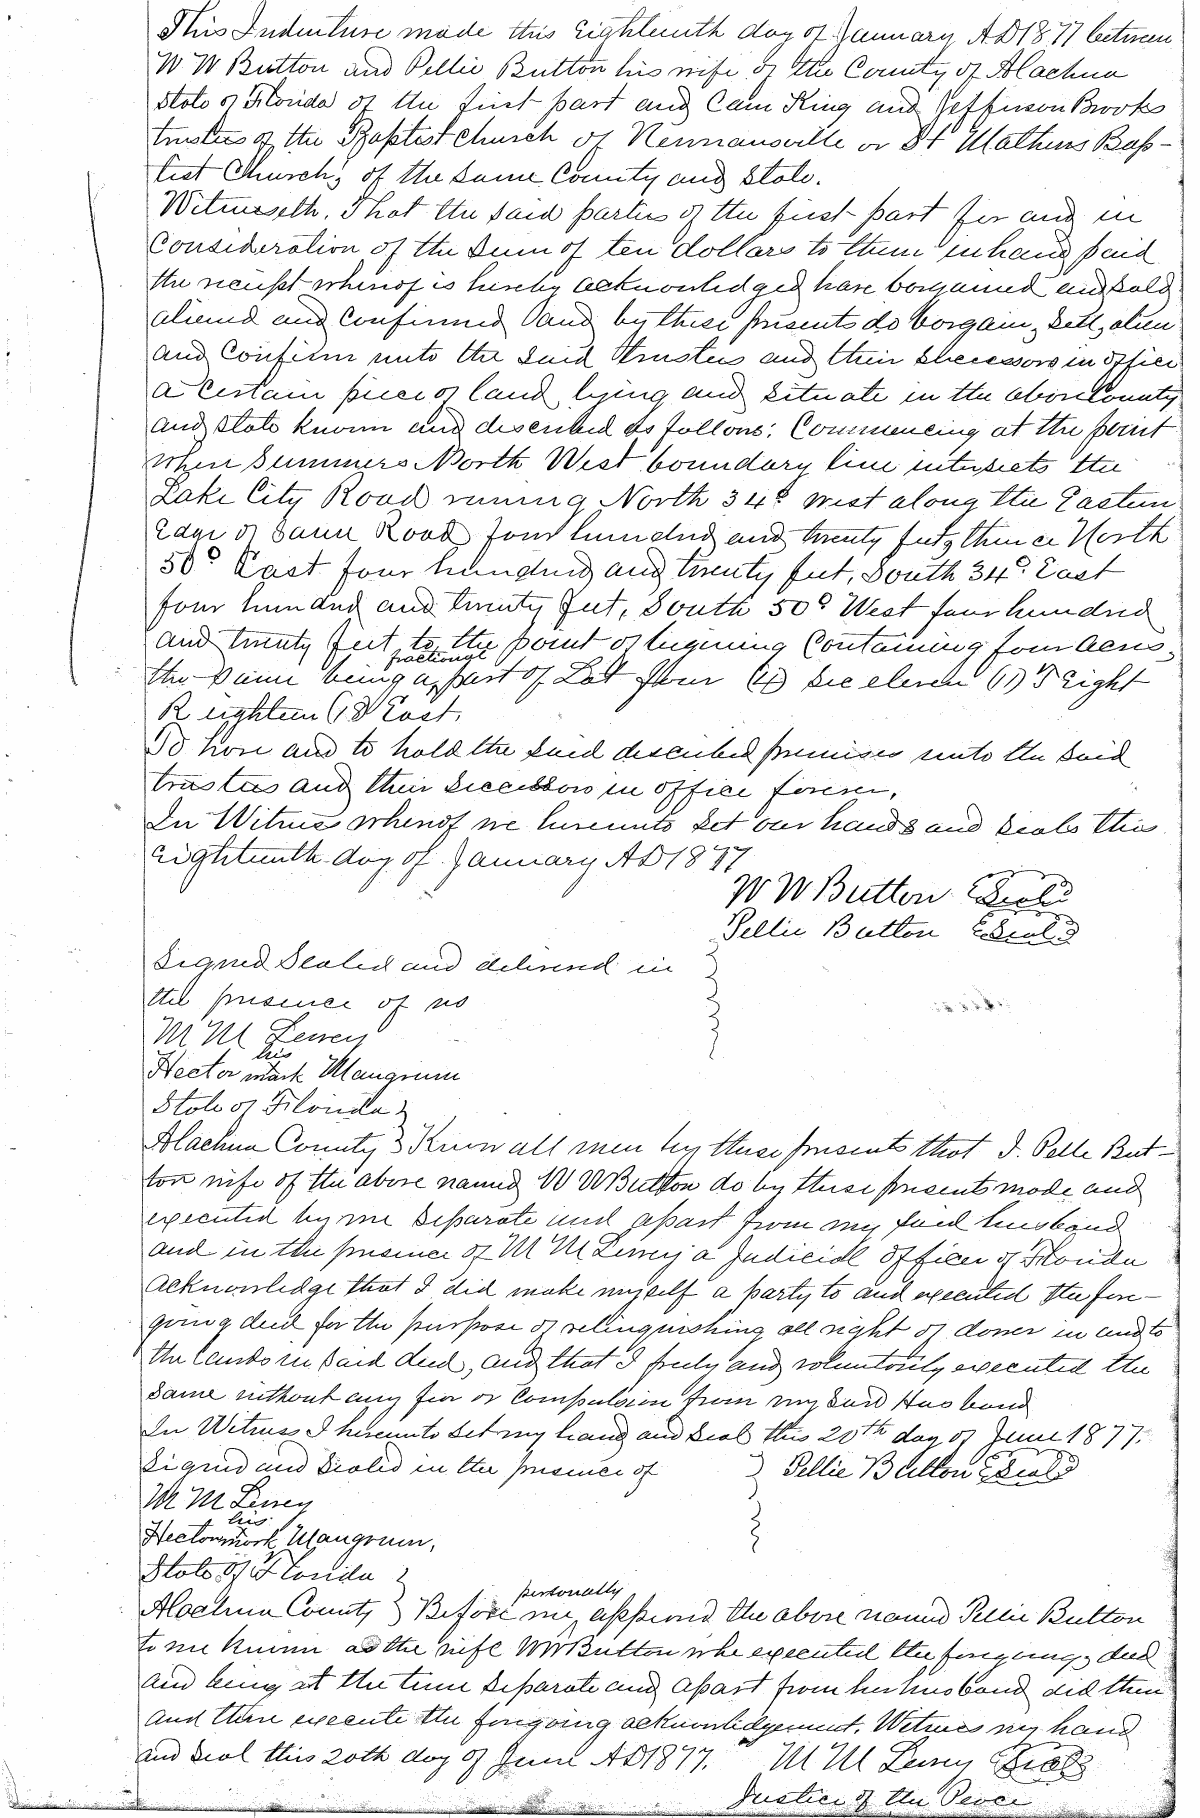 This Indenture made this Eighteenth day of January A.D 1877 between
W W Button and Pellie Button his wife of the County of Alachua
State of Florida of the first part and Cam King and Jefferson Brooks
trustees of the Baptist Church of Newnansville or St Mathews Bap-
tist Church, of the same County and State.
Witnesseth. That the said parties of the first part for and in
Consideration of the Sum of ten dollars to them in hand paid
the receipt whereof is hereby acknowledged have bargained and sold
aliened and confirmed and by these presents do bargain, sell, alien
and confirm unto the said trustees and their successors in office
a certain piece of land lying and situate in the above County
and State known and described as follows: Commencing at the point
when Summers North West boundary line intersects the
Lake City Road runing North 34° west along the Eastern
Edge of Same Road four hundred and twenty feet, thence North
50° East four hundred and twenty feet, South 34° East
four hundred and twenty feet, South 50° West four hundred
and twenty feet to the point of begining Containing four acres,
the same being a fractional part of Lot four (4) Sec eleven (11) T Eight
R eighteen (18) East.
To have and to hold the said described premises unto the said
trustees and their successors in office forever.
In Witness whereof we hereunto set our hands and seals this
eighteenth day of January A D 1877
W W Button (Seal)
Pellie Button (Seal)
Signed Sealed and delivered in
the presence of us
M M Lewey
Hector his mark Mangrum
State of Florida
Alachua County } Know all men by these presents that I. Pelle But-
ton wife of the above named W W Button do by these presents made and
executed by me separate and apart from my said husband
and in the presence of M M Lewey a Judicial officer of Florida
acknowledge that I did make myself a party to and executed the fore-
going deed for the purpose of relinquishing all right of dower in and to
the lands in said deed, and that I freely and voluntarily executed the
same without any fear or compulsion from my said Husband
In Witness I hereunto set my hand and seal this 20th day of June 1877.
Signed and Sealed in the presence of } Pellie Button (Seal)
M M Lewey
Hector his mark Mangrum,
State of Florida
Alachua County } Before me, personally appeared the above named Pellie Button
to me known as the wife W W Button who executed the foregoing deed
and being at the time separate and apart from her husband did then
and there execute the foregoing acknowledgement. Witness my hand
and seal this 20th day of June A D 1877. M M Lewey (Seal)
Justice of the Peace